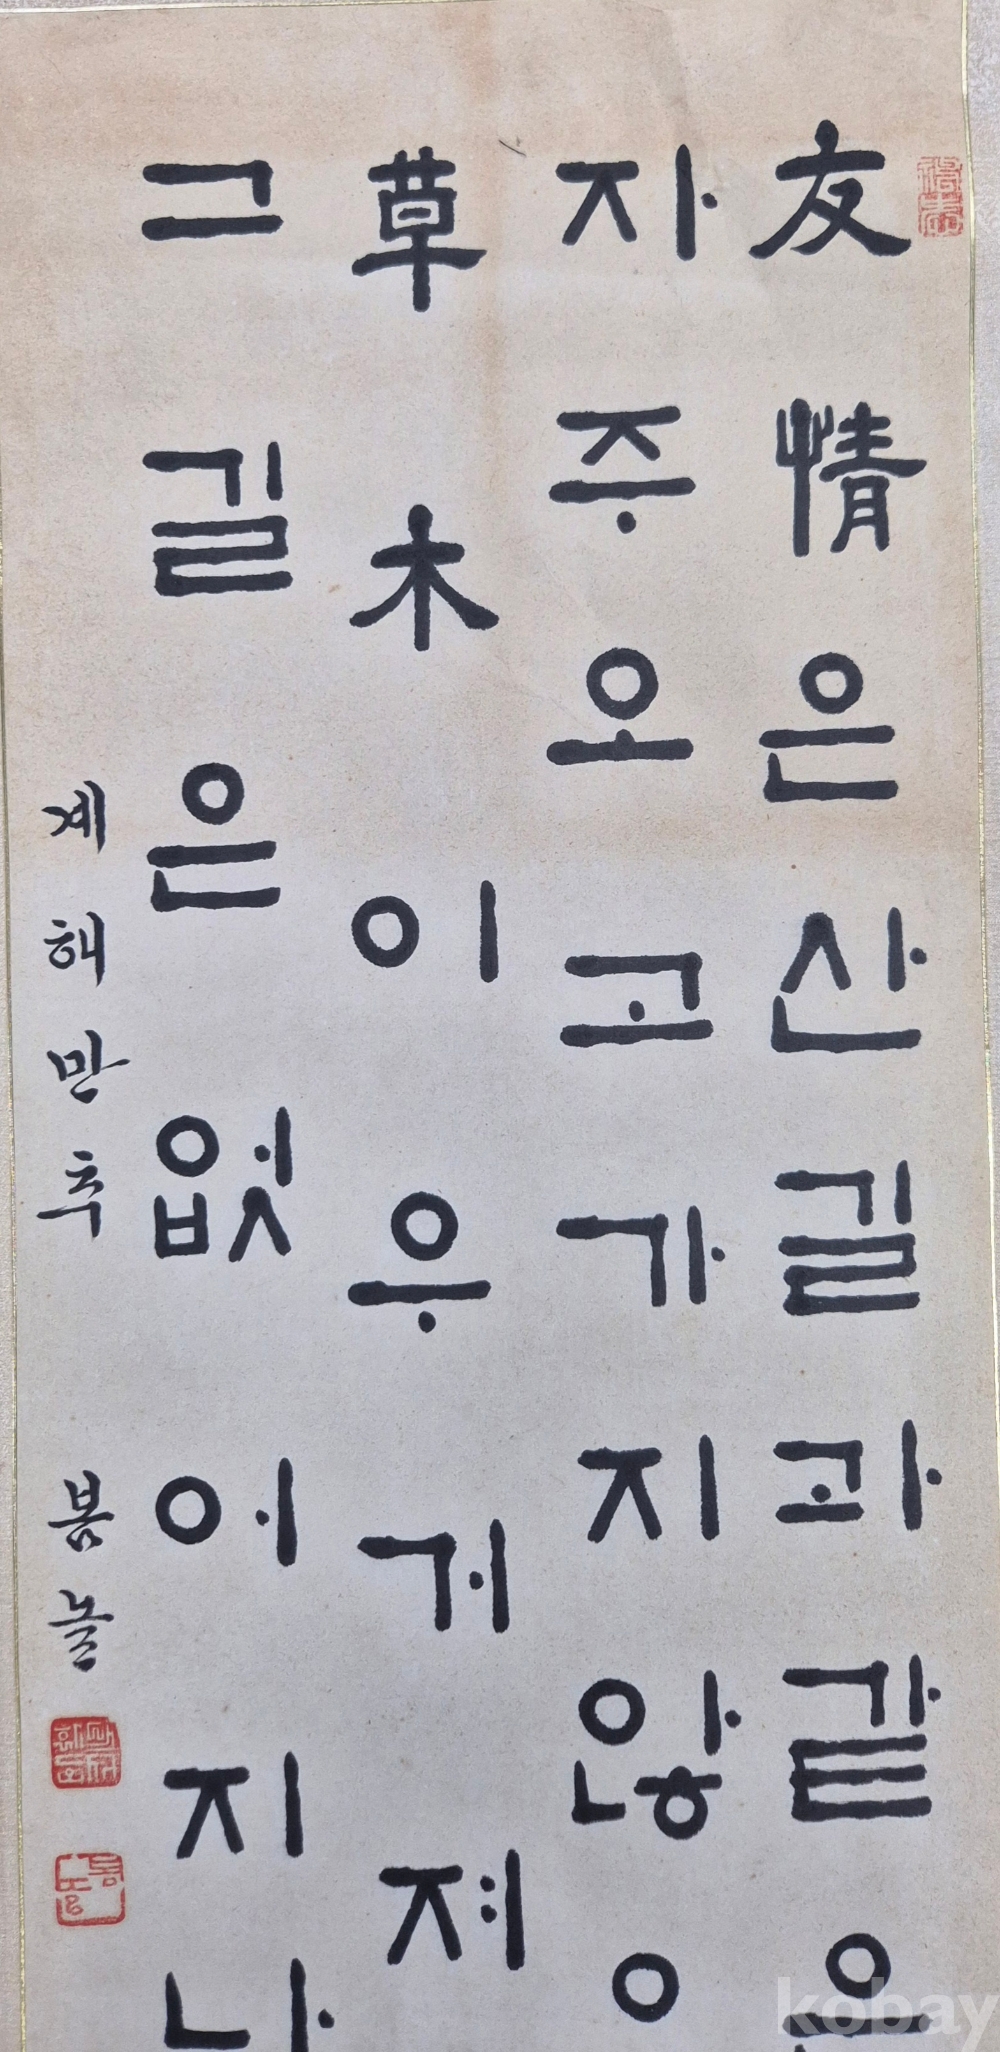 友情은산길과같은
자주오고가지않
草木이우거져
그길은없어지나
계해만추 봄놀
kobay